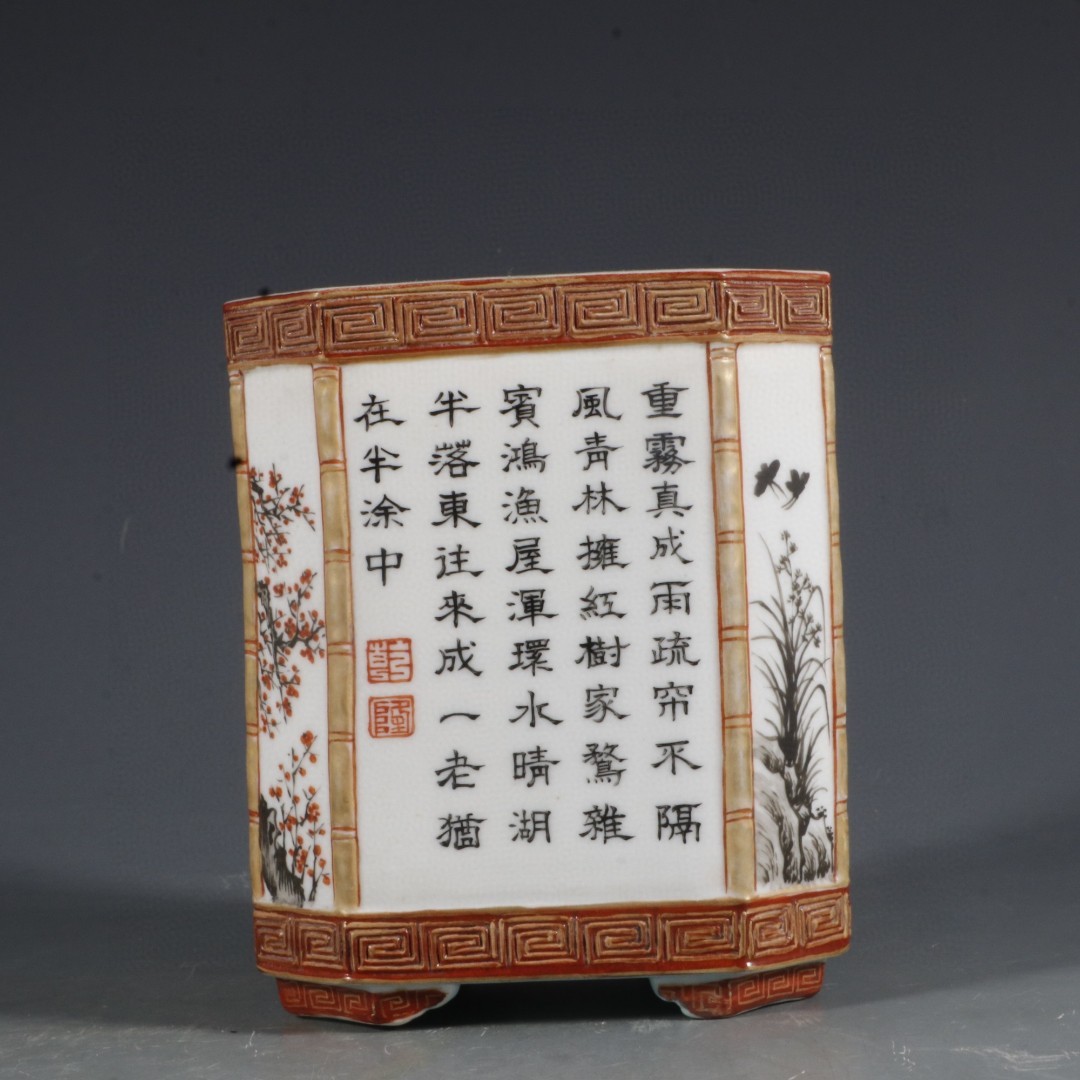 重霧真成雨疏帘不隔
風青林擁紅樹家鶩雜
賓鴻漁屋渾環水晴湖
半落東往來成一老猶
在半涂中
乾
隆